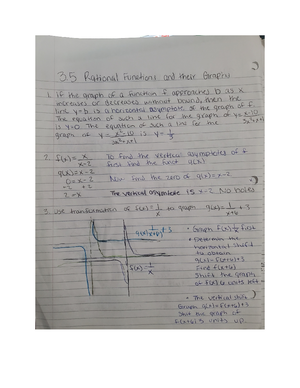 3.5 Rational Functions and their Graphs
1. If the graph of a function f approaches b as x
increases or decreases without bound, then the
line y=b is a horizontal asymptote of the graph of f.
The equation of such a line for the graph of y=
is y=0. The equation of such a line for the
graph of y = is y=
2. f(x)= x/x-2 To find the vertical asymptotes of f
first find the funct q(x)
q(x)=x-2
0=x-2 Now find the zero of q(x)=x-2
+2 +2
2=x The vertical asymptote is x=2. No holes
3. Use transformation of f(x)=1/x to graph g(x)=
• Graph f(x)=1/x first
• Determine the
horizontal shift
to obtain
Find
Shift the graph
of f(x) units left
f(x)=1/x
• The vertical shift
Graph
Shift the graph of
units up